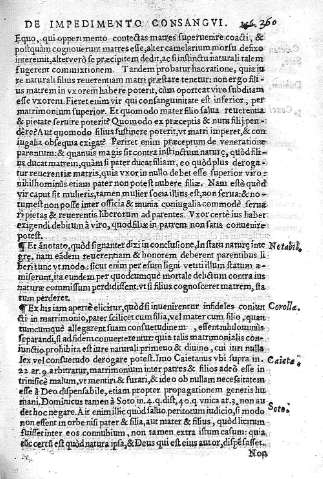 DE IMPEDIMENTO CONSANGVI. 360
Equo, qui opperimento contectas matres superuenire coacti, &
postquàm cognouerunt matres esse, alter camelarium morsu
interemit, alter verò se præcipitem dedit, ac si instinctu naturali talem
fugerent commixtionem. Tandem probatur hac ratione, quia in
re naturali filius superior matri præstare tenetur: non ergo fili-
us matrem in vxorem habere poterit, cùm oporteat viro subditam
esse vxorem. Fieret enim vir qui consanguinitate est inferior, per
matrimonium superior. Et quomodo mater filio salua reuerentia
& pietate seruire poterit? Quomodo ex præceptis & nutu filij pen-
dere? Aut quomodo filius sustinere poterit, vt matri imperet, & con-
iugalia obsequia exigat? Periret enim præceptum de veneratione
parentum: & quamuis magis sit contra instinctum naturæ, quòd fili-
us ducat matrem, quàm si pater ducat filiam, eo quòd plus deroga-
tur reuerentiæ matris, quia vxor in nullo debet esse superior viro:
nihilominus etiam pater non potest nubere filiæ. Nam esto quòd
vir caput sit mulieris, tamen mulier socia illius est, non serua: & no-
tum est non posse inter officia & munia coniugalia commodè serua-
ri pietas & reuerentia liberorum ad parentes. Vxor certè ius habet
exigendi debitum à viro, quod filiæ in patrem non satis conuenire
potest.
¶ Et annotato, quòd signanter dixi in conclusione, In statu naturæ inte
græ, nam eádem reuerentiam & honorem deberent parentibus li
beri tunc vt modo: sicut enim per esum ligni vetiti illum statum a-
miserunt, ita eundem per quodcumque mortale debitum contra ius
naturæ commissum perdidissent: vt si filius cognosceret matrem, sta
tum perderet.
¶ Ex his iam apertè elicitur, quòd si inuenirentur infideles coniun
cti in matrimonio, pater scilicet cum filia, vel mater cum filio, quan
tumcumque allegarent suam consuetudinem, essent nihilominus
separandi, si ad fidem conuerterentur: quia talis matrimonialis con-
iunctio, prohibita est iure naturali primario & diuino, cui non nulla
lex vel consuetudo derogare potest. Imo Caietanus vbi supra in
22 ar. 9. arbitratur, matrimonium inter patres & filios adeò esse in
trinsicè malum, vt mentiri & furari, & ideo ob nullam necessitatem
esse à Deo dispensabile, etiam propter propagationem generis hu
mani. Dominicus tamen à Soto in. 4. q. dist. 40. q. vnica ar. 3. non au
det hoc negare. Ait enim illic quòd saluo peritorum iudicio, si modo
non essent in orbe nisi pater & filia, aut mater & filius, quòd licitum
fuisset inter eos connubium, non tamen extra istum casum: quia
illic certè est quòd natura ipsa, & Deus qui est eius autor, dispensasset.
Non
Notabile
Corolla.
Caieta.
Soto.